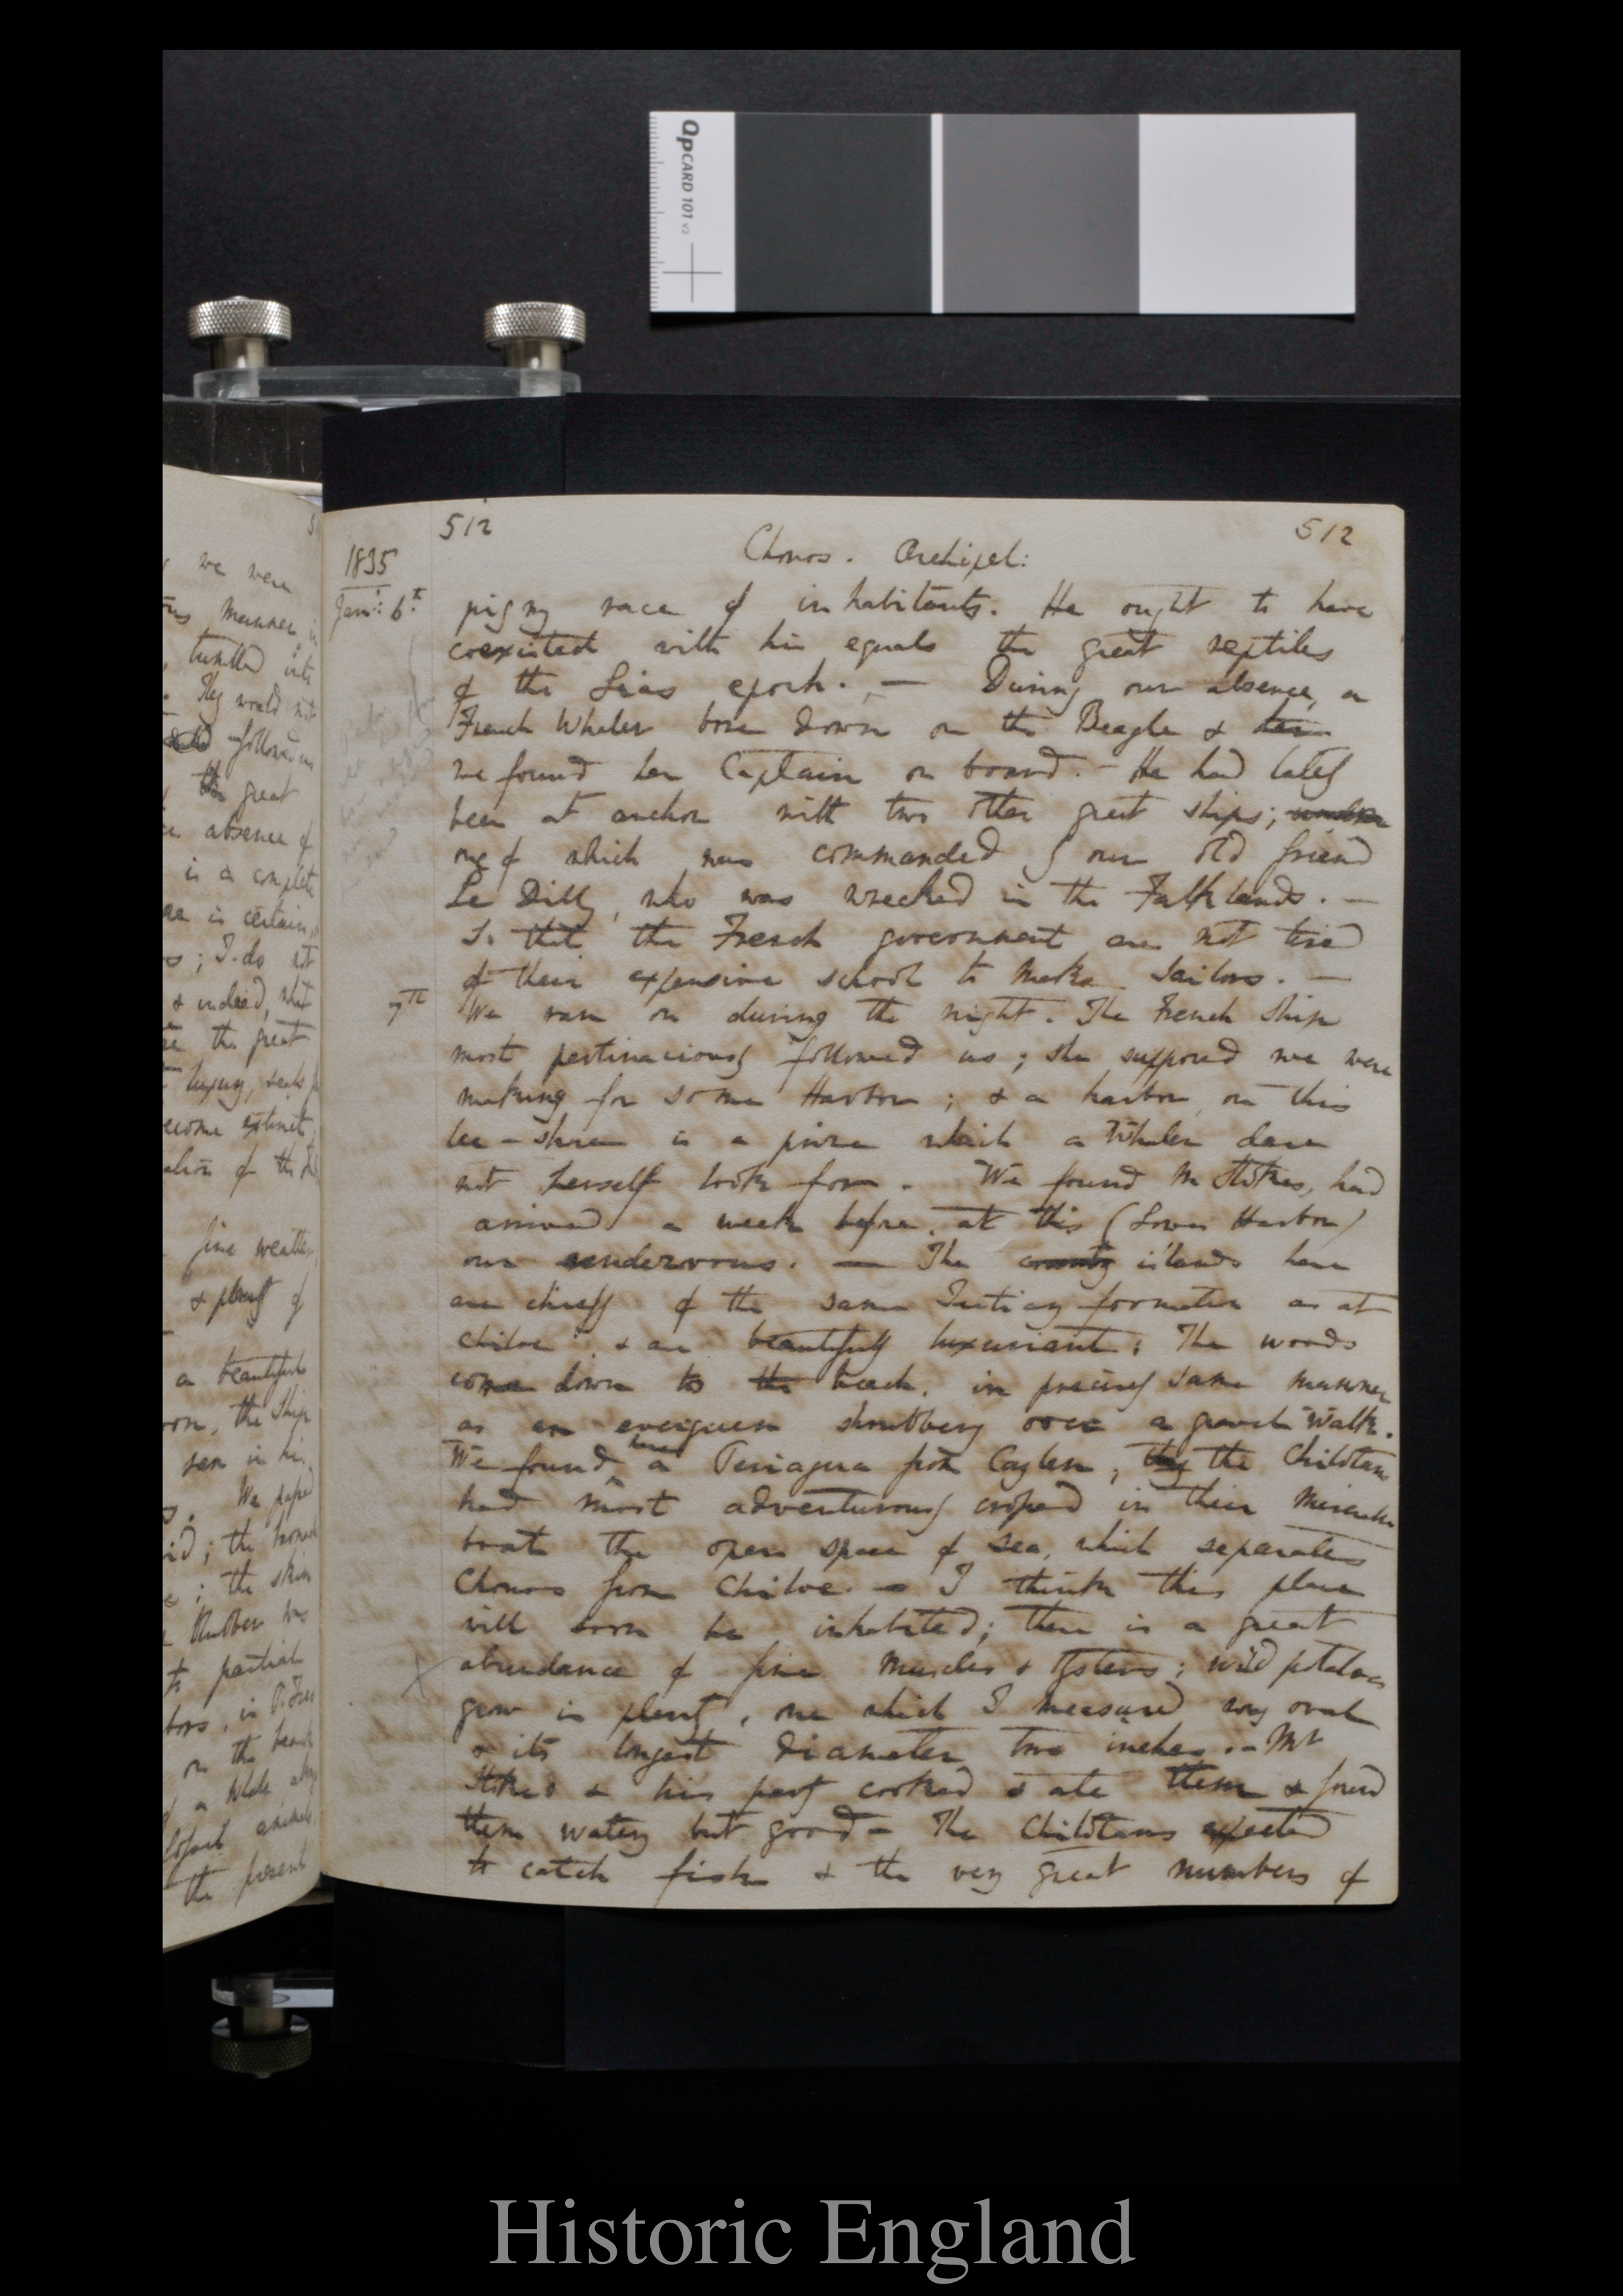 QpCARD 101 v2
512
512
Chonos. Archipel:
1835
Jan: 6th
pigmy race of inhabitants. He ought to have
coexisted with his equals the great reptiles
of the Lias epoch. — During our absence, a
French Whaler bore down on the Beagle &
we found her Captain on board. — He had lately
been at anchor with two other great ships;
one of which was commanded by our old friend
Le Dilly, who was wrecked in the Falklands. —
So that the French government are not tired
of their expensive school to make Sailors. —
7th
We ran on during the night. The French Ship
most pertinaciously followed us; she supposed we were
making for some Harbor; & a harbor on this
lee-shore is a prize which a Whaler dare
not herself look for. We found Mr Stokes, had
arrived a week before, at this (Lowes Harbor)
our rendezvous. — The country islands here
are chiefly of the same Tertiary formation as at
Chiloe, & are beautifully luxuriant; The woods
come down to the beach, in precisely same manner
as an evergreen shrubbery over a gravel Walk.
We found here a Periagua from Caylen; they the Chilotans
had most adventurously crossed in their miserable
boat the open space of sea, which separates
Chonos from Chiloe. — I think this place
will soon be inhabited; there is a great
abundance of fine Muscles & Oysters; wild potatoes
grow in plenty, one which I measured was oval
& its longest diameter two inches. — Mr
Stokes & his party cooked & ate them & found
them watery but good — The Chilotans expected
to catch fish & the very great numbers of
we were
manner, in
tumbled into
They would not
followed us
the great
absence of
is a complete
is certain,
; I do not
& indeed, what
the great
become extinct
fine weather
& plenty of
a beautiful
the Ship
seen in his
; the skin
partial
on the beach
of a Whale
animals
the present
Historic England